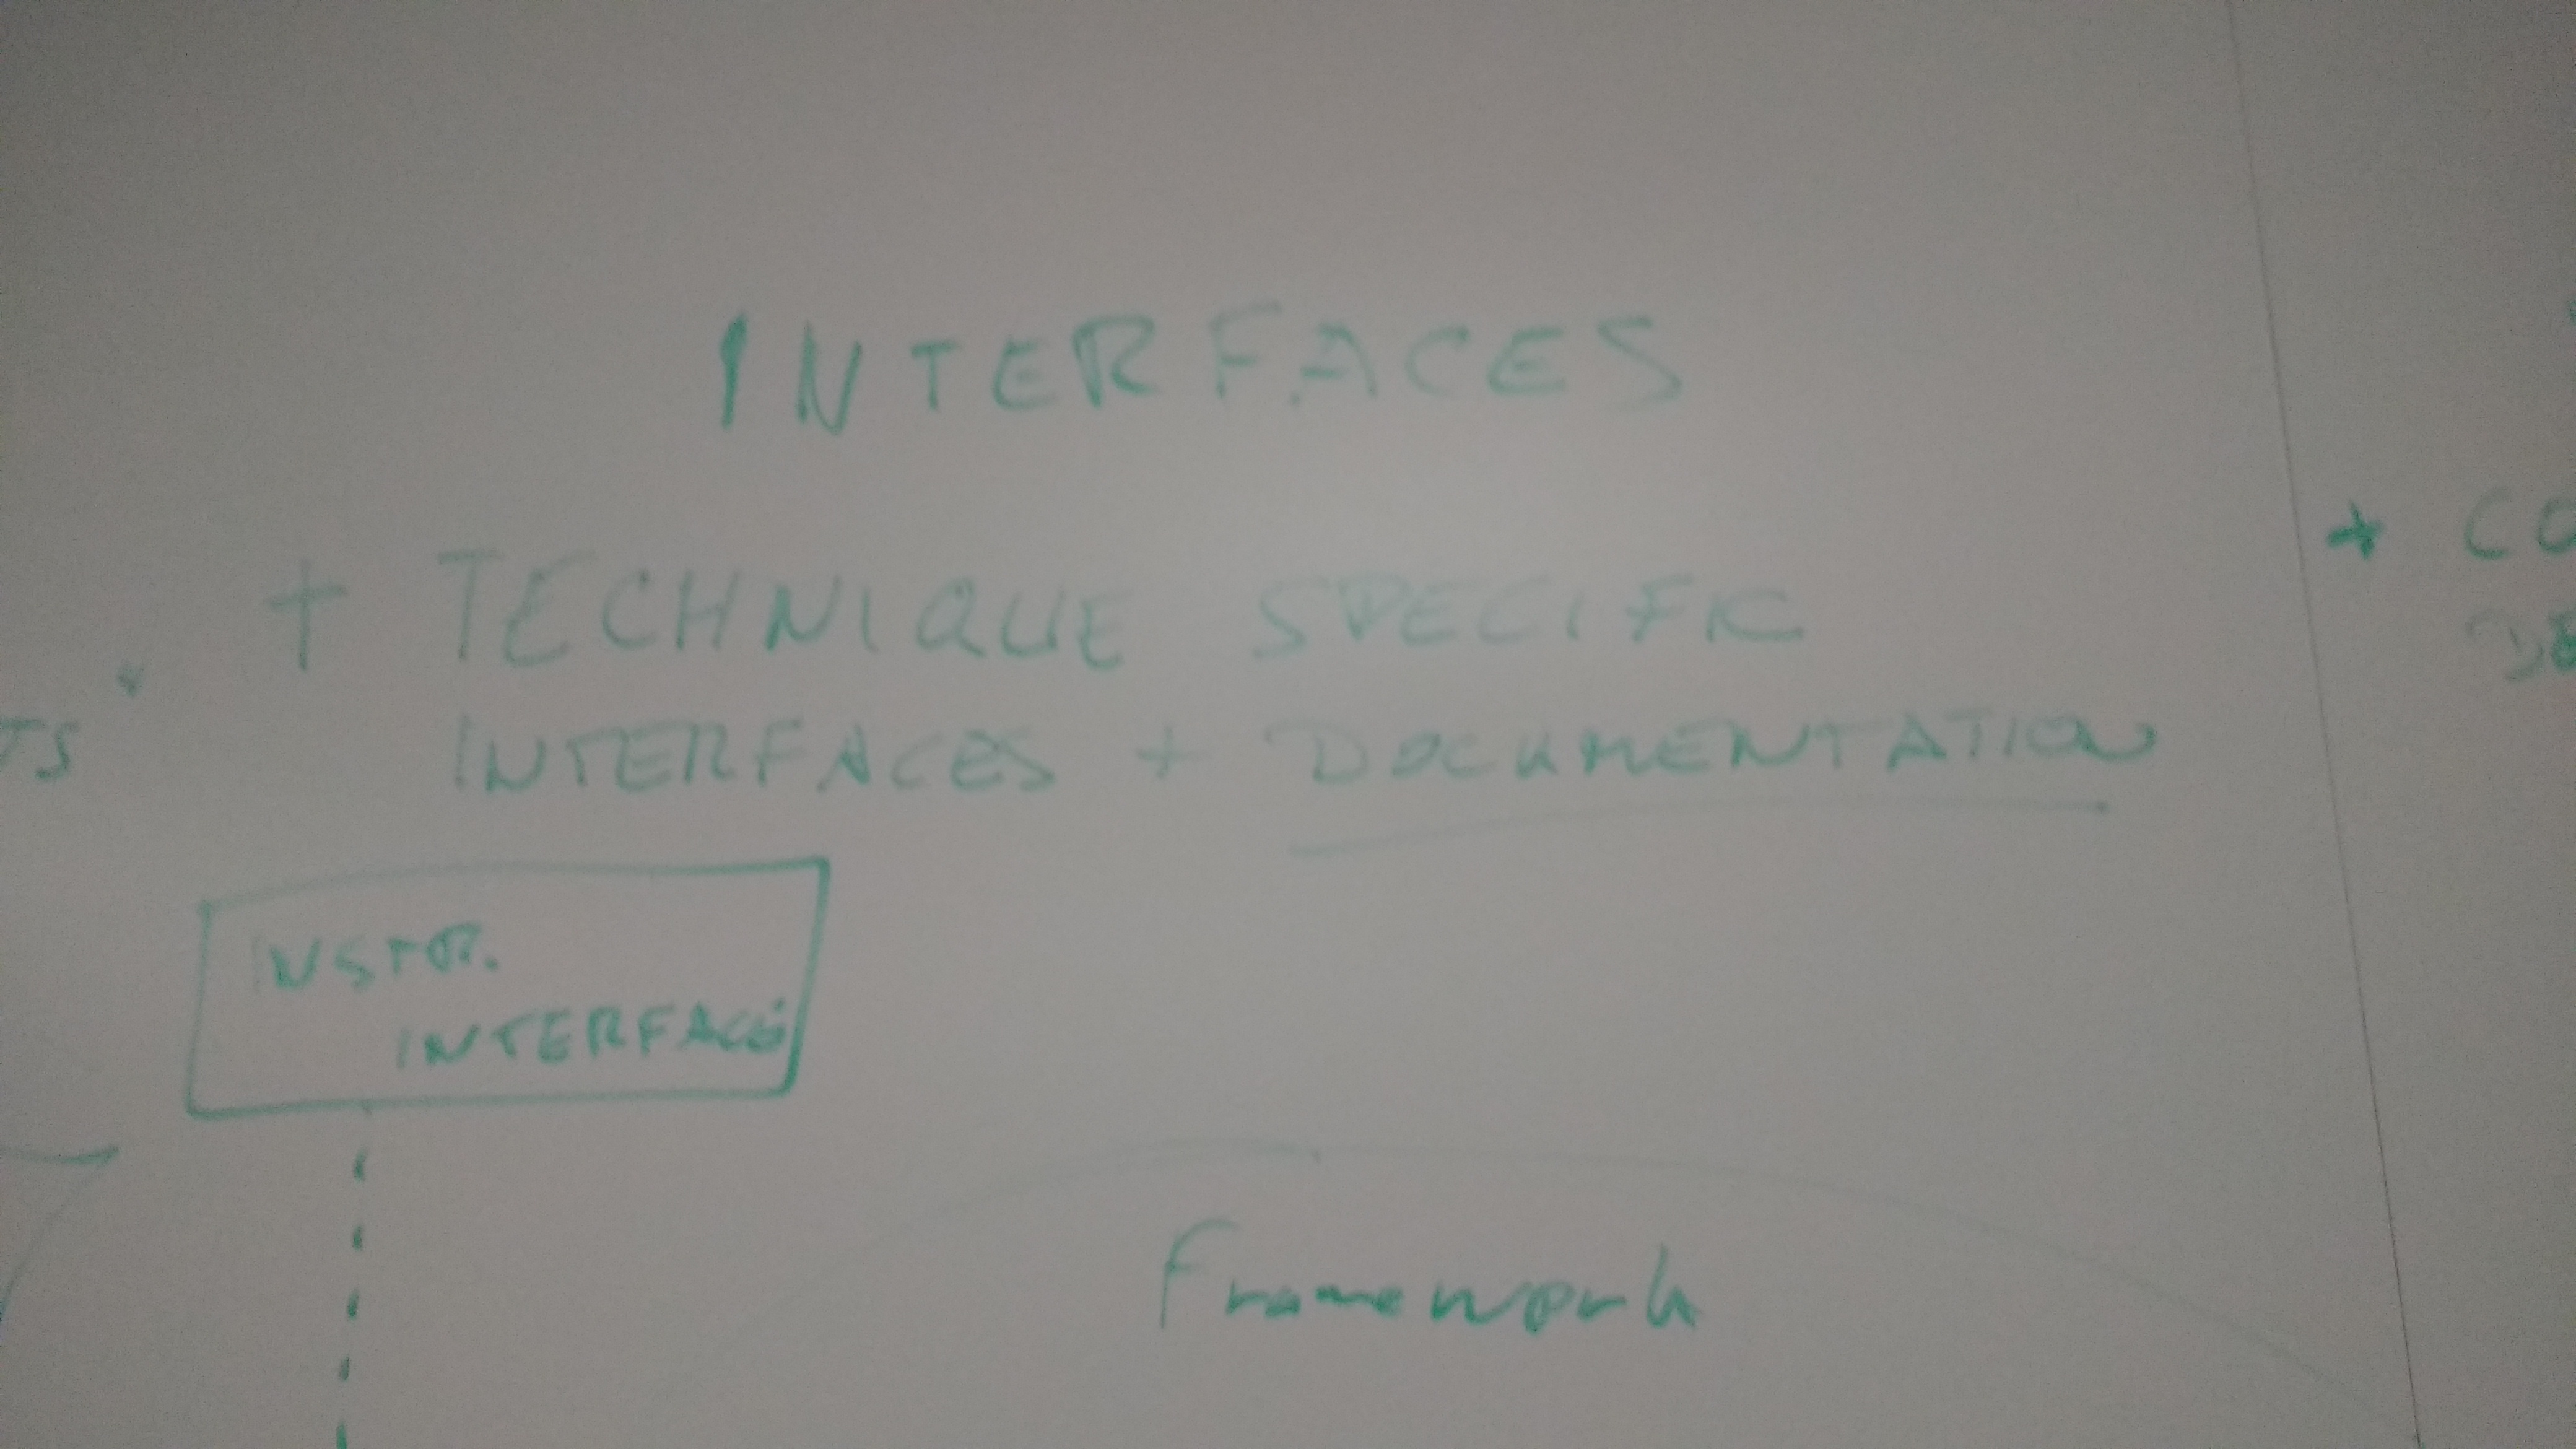 INTERFACES
+ TECHNIQUE SPECIFIC
INTERFACES + DOCUMENTATION
INSTR.
INTERFACE
Framework
TS
+ CO
DE